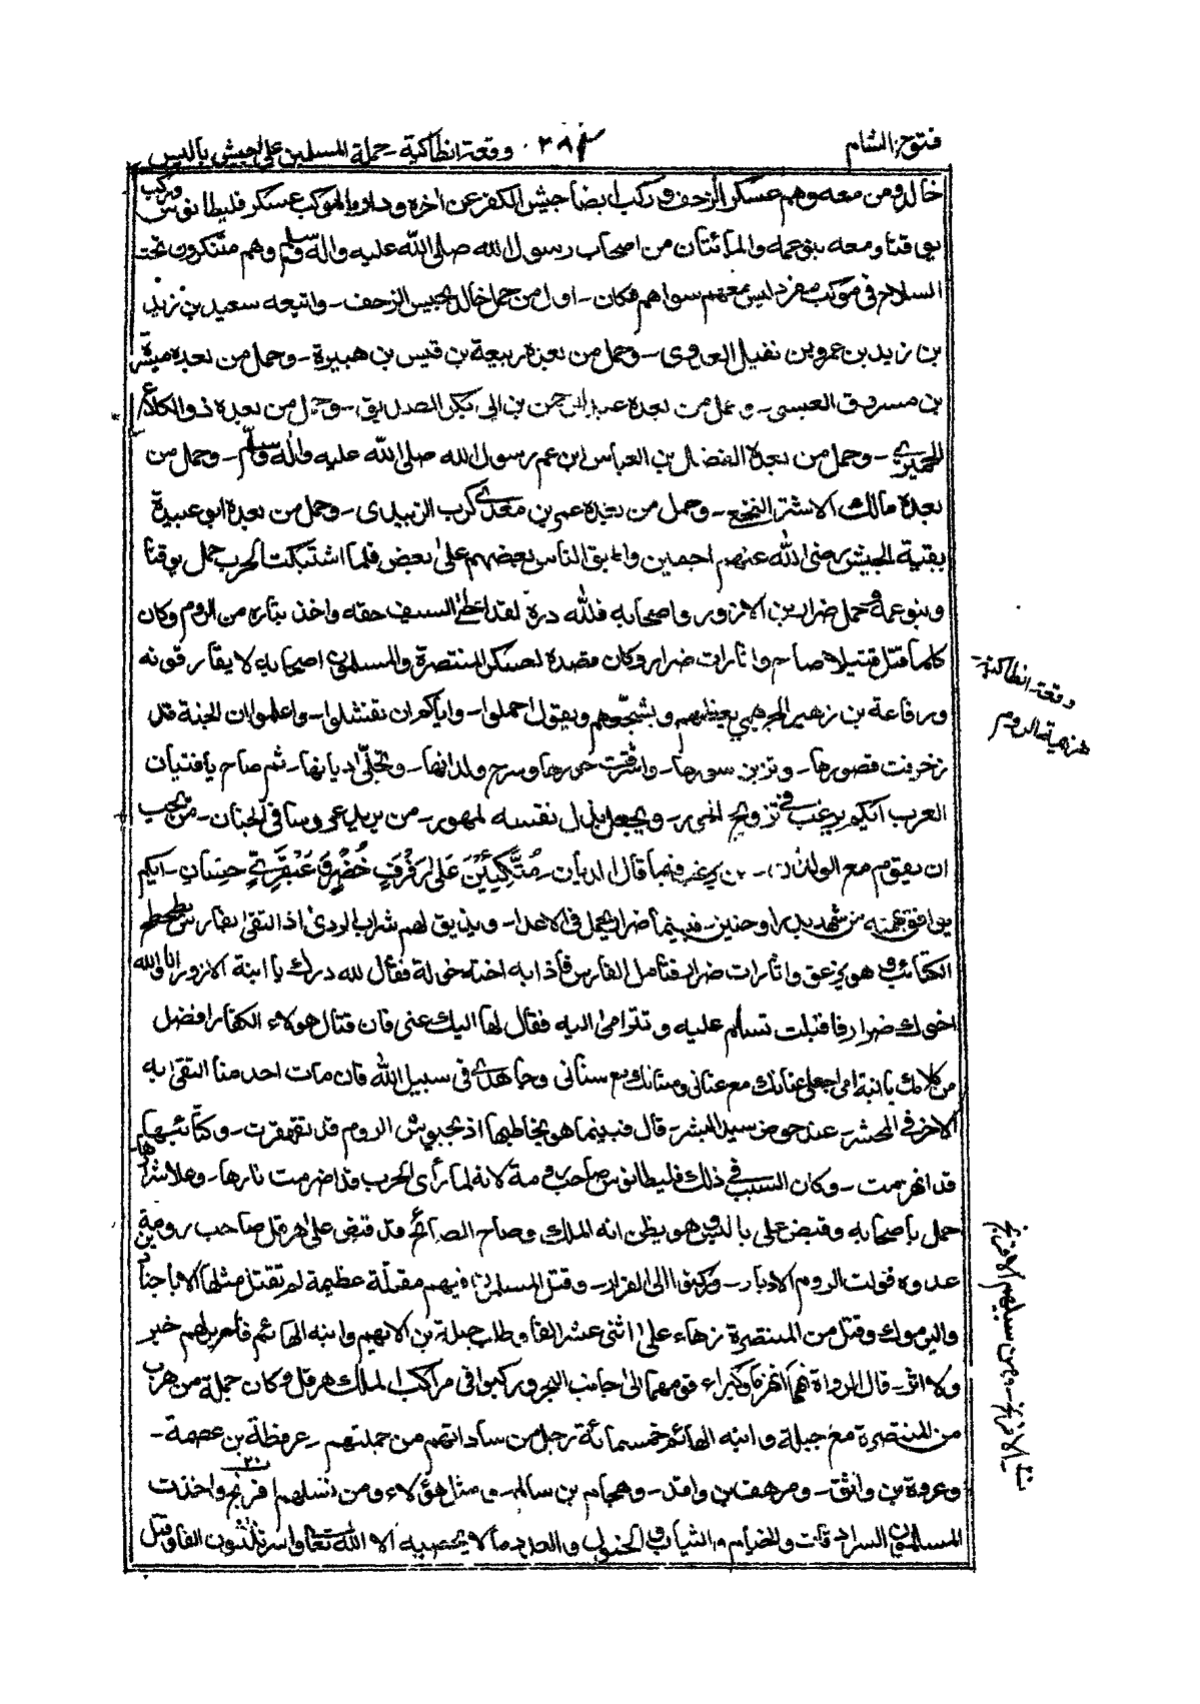 فتوح الشام
وقعة انطاكية - حملة المسلمين على جيش باليس
خالد ومن معه وهم عسكر الزحف وركب ايضا جيش الكفر عن اخره وداروا لموكب عسكر فليطانوس وركب
يوقنا ومعه بنو عمه والمائتان من اصحاب رسول الله صلى الله عليه واله وسلم وهم متنكرون تحت
السلاح في موكب مفرد ليس معهم سواهم فكان - اول من حمل خالد بجيش الزحف - واتبعه سعيد بن زيد
بن زيد بن عمرو بن نفيل العدوى - وحمل من بعده ربيعة بن قيس بن هبيرة - وحمل من بعده ميسرة
بن مسروق العبسى - وحمل من بعده عبد الرحمن بن ابى بكر الصديق - وحمل من بعده ذو الكلاع
الحميرى - وحمل من بعده الفضل بن العباس ابن عم رسول الله صلى الله عليه واله وسلم - وحمل من
بعده مالك الاشتر النخعى - وحمل من بعده عمرو بن معدى كرب الزبيدى - وحمل من بعده ابو عبيدة
بقية الجيش رضى الله عنهم اجمعين واطبق الناس بعضهم على بعض فلما اشتبكت الحرب حمل يوقنا
وبنو عمه وحمل ضرار بن الازور واصحابه فلله دره لقد اعطى السيف حقه واخذ بثاره من الروم وكان
كلما قتل قتيلا صاح واثارات ضرار وكان قصده لعسكر المنتصرة والمسلمون اصحابه لا يفارقونه
ورفاعة بن زهير الجرهمي يعظهم ويشجعهم ويقول احملوا - واياكم ان تفشلوا - واعلموا ان الجنة قد
زخرفت قصورها - وتزين سورها - واشرقت حورها وسرح ولدانها - وتجلى ديانها - ثم صاح يافتيان
العرب ايكم يرغب في تزويج الحور - ويجعل بذل نفسه لمهور - من يريد عروسا في الجنان - من يحب
ان يقوم مع الولدان - من يرغب فيما قال الديان - مُتَّكِئِيْنَ عَلَى رَفْرَفٍ خُضْرٍ وَّعَبْقَرِيٍّ حِسَانٍ - ايكم
يوافق همته من شهد بدرا وحنين - فبينما ضرار يحمل في الاعدا - ويذيق لهم شراب الردى اذ التقى بفارس يطحطح
الكتائب وهو يزعق واثارات ضرار فتأمل الفارس فاذا به اخته خولة فقال لله درك يا ابنة الازور انا والله
اخوك ضرار فاقبلت تسلم عليه وتترامى اليه فقال لها اليك عنى فان قتال هولاء الكفار افضل
من كلامك يا ابنة امى اجعلى عنانك مع عنانى وسنانك مع سنانى وجاهدى في سبيل الله فان مات احد منا التقى به
الاخر في المحشر - عند حوض سيد البشر - قال فبينما هو يخاطبها اذ بجيوش الروم قد تقهقرت - وكتائبها
قد انهزمت - وكان السبب في ذلك فليطانوس صاحب رومة لانه لما رأى الحرب قد اضرمت نارها - وعلا شرارها
حمل باصحابه وقبض على باليس وهو يظن انه الملك وصاح الصائح قد قبض على هرقل صاحب رومية بن
عدوه فولت الروم الادبار - وركنوا الى الفرار - وقتل المسلمون فيهم مقتلة عظيمة لم تقتل مثلها الا باجنادين
واليرموك وقتل من المنتصرة زهاء على اثنى عشر الفا وطلب جبلة بن الايهم وابنه الهائم فلم يربهم خبر
ولا اثر - قال الرواة انهما انهزما وكبراء قومهما الى جانب البحر وركبوا في مراكب الملك هرقل وكان جملة من هرب
من المنتصرة مع جبلة وابنه الهائم خمسمائة رجل من ساداتهم من جملتهم - عرفظة بن عصمة -
وعروة بن واثق - ومرهف بن واقد - وهجام بن سالم - ومثل هؤلاء ومن نسلهم افرنج واخذت
المسلمون السرادقات والخيام والثياب والخيول والعدد مالا يحصيه الا الله تعالى واسر ثلثون الفا وقتل
وقعة انطاكية -
هزيمة الروم
ومن سبيلهم الافرنج